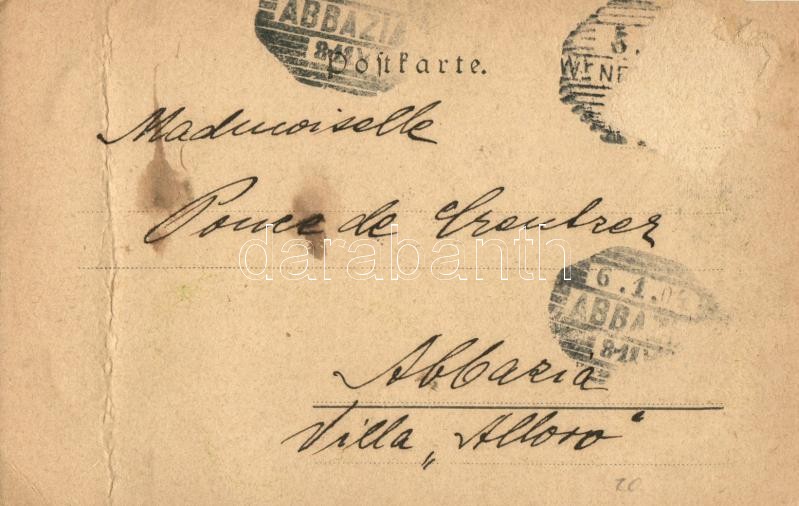 ABBAZIA
8-11 V
5.
WIEN
Postkarte.
Mademoiselle
Ponce de Creutzer
darabanth
6.1.0
ABBAZ
8-11 V
Abbazia
Villa „Alloro“
20